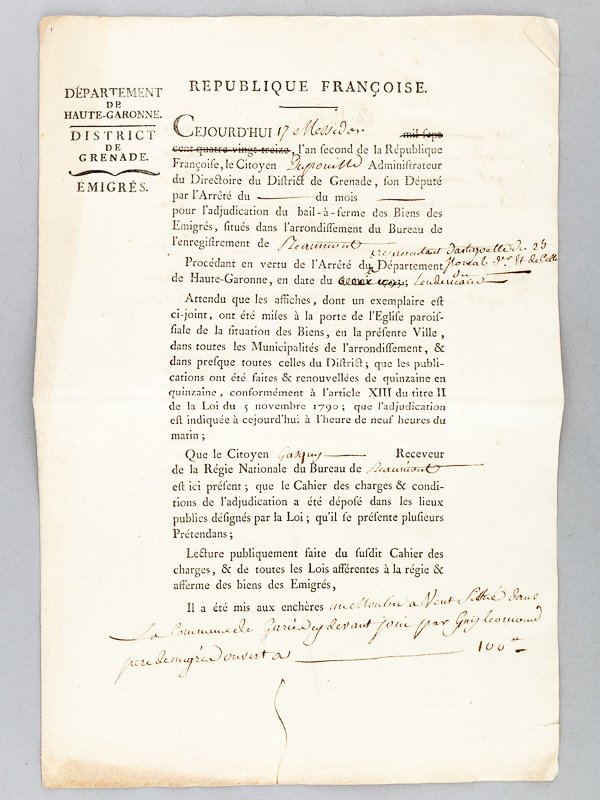 DÉPARTEMENT
DE
HAUTE-GARONNE.
DISTRICT
DE
GRENADE.
ÉMIGRÉS.
REPUBLIQUE FRANÇOISE.
CEJOURD'HUI 17 Messidor mil sept
cent quatre-vingt-treize, l'an second de la République
Françoise, le Citoyen Administrateur
du Directoire du District de Grenade, son Député
par l'Arrêté du du mois
pour l'adjudication du bail-à-ferme des Biens des
Emigrés, situés dans l'arrondissement du Bureau de
l'enregistrement de Beaumont
Procédant en vertu de l'Arrêté du Département
de Haute-Garonne, en date du
Attendu que les affiches, dont un exemplaire est
ci-joint, ont été mises à la porte de l'Eglise parois-
siale de la situation des Biens, en la présente Ville,
dans toutes les Municipalités de l'arrondissement, &
dans presque toutes celles du District; que les publi-
cations ont été faites & renouvellées de quinzaine en
quinzaine, conformément à l'article XIII du titre II
de la Loi du 5 novembre 1790; que l'adjudication
est indiquée à cejourd'hui à l'heure de neuf heures du
matin;
Que le Citoyen Receveur
de la Régie Nationale du Bureau de Beaumont
est ici présent; que le Cahier des charges & condi-
tions de l'adjudication a été déposé dans les lieux
publics désignés par la Loi; qu'il se présente plusieurs
Prétendans;
Lecture publiquement faite du susdit Cahier des
charges, & de toutes les Lois afférentes à la régie &
afferme des biens des Emigrés,
Il a été mis aux enchères un Moulin a Vent Sittué dans
La Commune de Gariès cy devant joui par Guy
pere demigré ouvert a 100